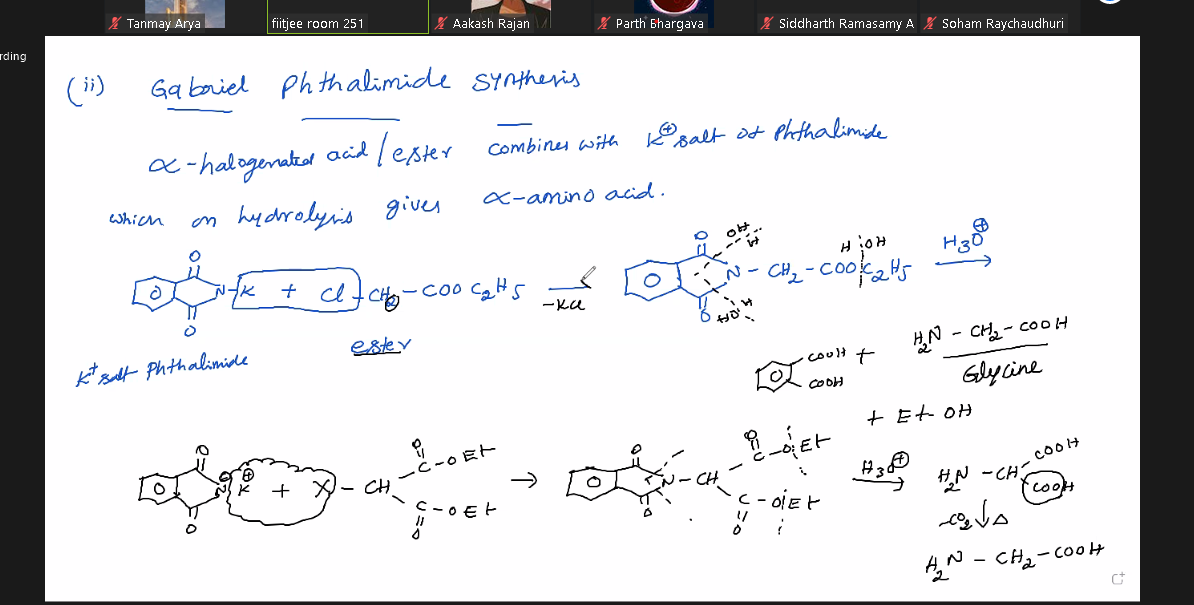 Tanmay Arya
fiitjee room 251
Aakash Rajan
Parth Bhargava
Siddharth Ramasamy A
Soham Raychaudhuri
rding
(ii) Gabriel Phthalimide Synthesis
α-halogenated acid/ester combines with K⊕ salt of Phthalimide
which on hydrolysis gives α-amino acid.
O O N-K + Cl-CH2-COOC2H5 -KCl → O O N-CH2-COOC2H5 OH H HO H H OH H3O⊕ →
K+ salt Phthalimide
ester
COOH COOH + H2N-CH2-COOH
Glycine
+ EtOH
O O N⊖ K⊕ + X-CH C-OEt O C-OEt O → O O N-CH C-OEt O C-OEt O H3O⊕ → H2N-CH COOH COOH
-CO2 ↓ Δ
H2N-CH2-COOH